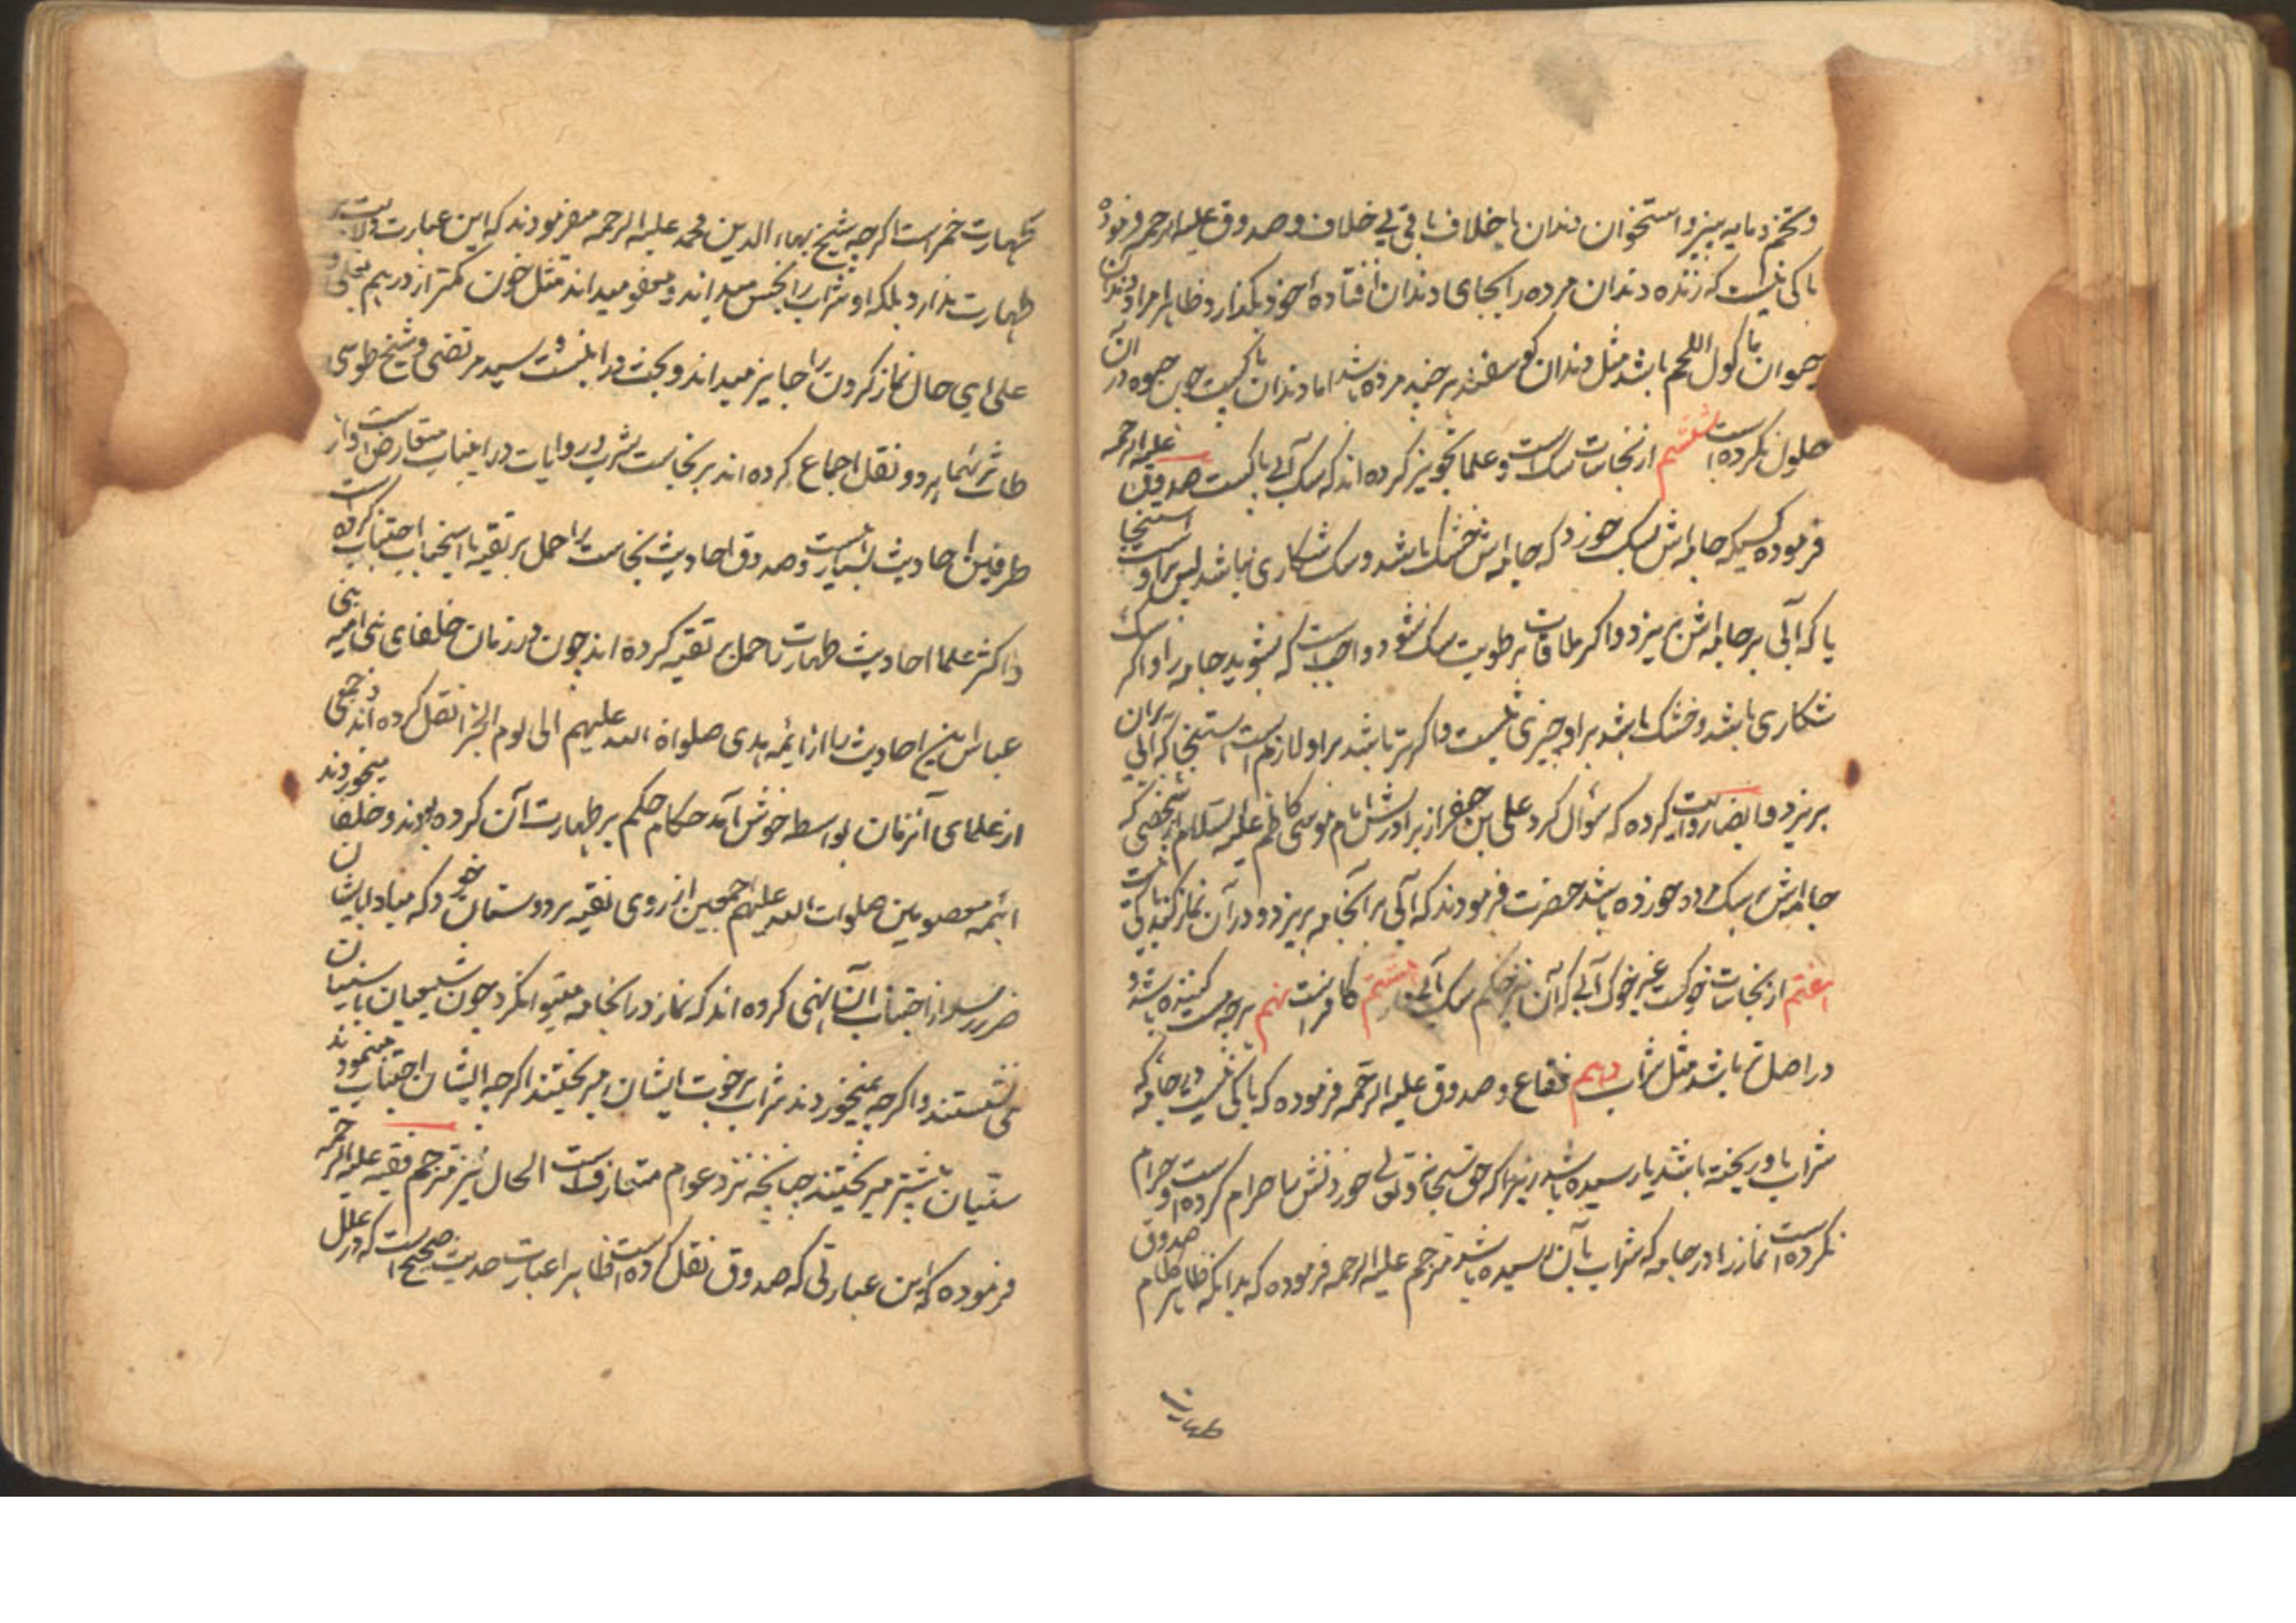 و تخم و مایه پنیر و استخوان دندان با خلاف باقی بی خلاف و صدوق علیه الرحمه فرموده
باکی نیست که زنده دندان مرده را بجای دندان افتاده خود بگذارد و ظاهرا مراد دندان
حیوان ماکول اللحم باشد مثل دندان گوسفند هر چند مرده باشد اما دندان پاکست چون حیوه در آن
حلول نکرده است ششم از نجاسات سک است و علما تجویز کرده اند که سک آبی پاکست صدوق علیه الرحمه
فرموده کسیکه جامه اش بسک خورد که جامه اش خشک باشد و سک شکاری نباشد پس بر او است
یا که آبی بر جامه اش بریزد و اگر ملاقات برطوبت سک شود واجبست که بشوید جامه را و اگر سک
شکاری باشد و خشک باشد بر او چیزی نیست و اگر تر باشد بر او لازم است که آبی بر آن
بریزد و ایضا روایت کرده که سؤال کرد علی بن جعفر از برادرش امام موسی کاظم علیه السلام از شخصی که
جامه اش بسک مرده خورده باشد حضرت فرمودند که آبی بر آنجامه بریزد و در آن نماز کند باکی نیست
هفتم از نجاسات خوکست غیر خوک آبی که آن نیز حکم سک آبی دارد هشتم کافر است نهم هر چه مست کننده باشد و
در اصل تر باشد مثل شراب دهم فقاع و صدوق علیه الرحمه فرموده که باکی نیست در جامه که
شراب باو ریخته باشد یا رسیده باشد زیرا که حق سبحانه و تعالی خوردنش را حرام کرده است و حرام
نکرده است نماز را در جامه که شراب بآن رسیده باشد مترجم علیه الرحمه فرموده که بدانکه ظاهر کلام صدوق
طهارت
طهارت خمر است اگر چه شیخ بهاء الدین محمد علیه الرحمه میفرمودند که این عبارت دلالت بر
طهارت ندارد بلکه او شراب را نجس میداند و معفو میداند مثل خون کمتر از درهم بغلی و
علی ای حال نماز کردن را جایز میداند و بحث در اینست و سید مرتضی و شیخ طوسی
طاب ثراهما هر دو نقل اجماع کرده اند بر نجاست شرب و روایات در اینباب متعارض است و از
طرفین احادیث بسیار است و صدوق احادیث نجاست را حمل بر تقیه یا استحباب اجتناب کرده است
و اکثر علما احادیث طهارت را حمل بر تقیه کرده اند چون در زمان خلفای بنی امیه و بنی
عباس این احادیث را از ائمه هدی صلواة الله علیهم الی یوم الجزا نقل کرده اند و جمعی
از علمای آنزمان بواسطه خوش آمد حکام حکم بر طهارت آن کرده بودند و خلفا میخوردند
ائمه معصومین صلوات الله علیهم اجمعین از روی تقیه بر دوستان خود که مبادا بایشان
ضرر رسد از اجتناب آن نهی کرده اند که نماز در انجامه میتوانکرد چون شیعیان با سنیان
می نشستند و اگر چه نمیخوردند شراب بر رخوت ایشان میریختند اگر چه ایشان اجتناب مینمودند
سنیان بیشتر میریختند چنانچه نزد عوام متعارف است الحال نیز مترجم فقیه علیه الرحمه
فرموده که این عبارتی که صدوق نقل کرده است ظاهرا عبارت حدیث صحیح است که در علل